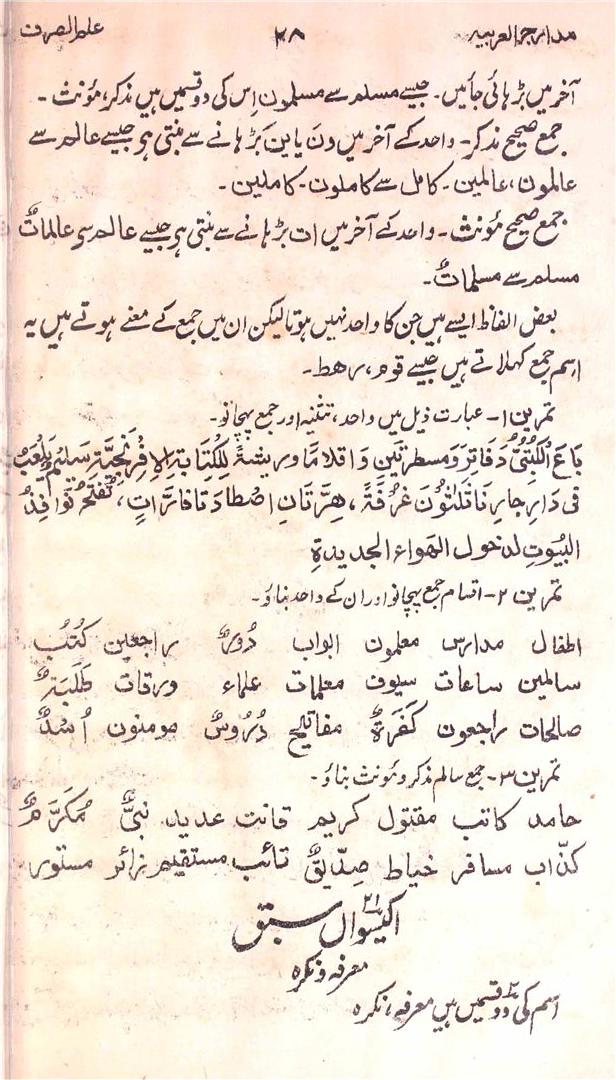 مدارج العربیہ ۲۸ علم الصرف
آخر میں بڑہائی جائیں۔ جیسے مسلم سے مسلمون اِس کی دو قسمیں ہیں مذکر، مؤنث۔
جمع صحیح مذکر۔ واحد کے آخر میں ونَ یا ینَ بڑہانے سے بنتی ہو جیسے عالم سے
عالمون، عالمین۔ کامل سے کاملون۔ کاملین۔
جمع صحیح مؤنث۔ واحد کے آخر میں ات بڑہانے سے بنتی ہو جیسے عالمہ سو عالماتٌ
مسلم سے مسلماتٌ۔
بعض الفاظ ایسے ہیں جن کا واحد نہیں ہوتا لیکن ان میں جمع کے معنے ہوتے ہیں یہ
اسم جمع کہلاتے ہیں جیسے قوم، رھط۔
تمرین ۱۔ عبارت ذیل میں واحد، تثنیہ اور جمع پہچانو۔
بَاعَ الْکُتُبِیُّ دَفَاتِرَ وَمسطرتَینِ وَاقلامًا وریشةً لِلْکِتَابَةِ الاِفْرَنْجِیَّةِ سَلِیْمٌ یَلْعَبُ
فی دَارِ جارِنَا ثَلٰثُوْنَ غُرْفَةً، ھِرَّتَانِ اصْطَادَتَا فَارَاتٍ، تُفْتَحُ نَوَافِذُ
البُیُوتِ لدخول الھَواء الجدیدةِ
تمرین ۲۔ اقسام جمع پہچانو اور ان کے واحد بناؤ۔
اطفال مدارس معلمون ابواب دُورٌ راجعین کُتُبٌ
سالمین ساعات سیوف معلمات علماء ورقات طَلَبَةٌ
صالحات راجعون کَفَرَةٌ مفاتیح دُرُوسٌ مومنون اُسُدٌ
تمرین ۳۔ جمع سالم مذکر و مؤنث بناؤ۔
حامد کاتب مقتول کریم قانت عدید نبیٌّ مُکَرَّمٌ
کذّاب مسافر خیاط صِدِّیقٌ تائب مستقیم زائر مستور
اکیسواں ۲۱ سبق
معرفہ و نکرہ
اسم کی دو ۲ قسمیں ہیں معرفہ، نکرہ